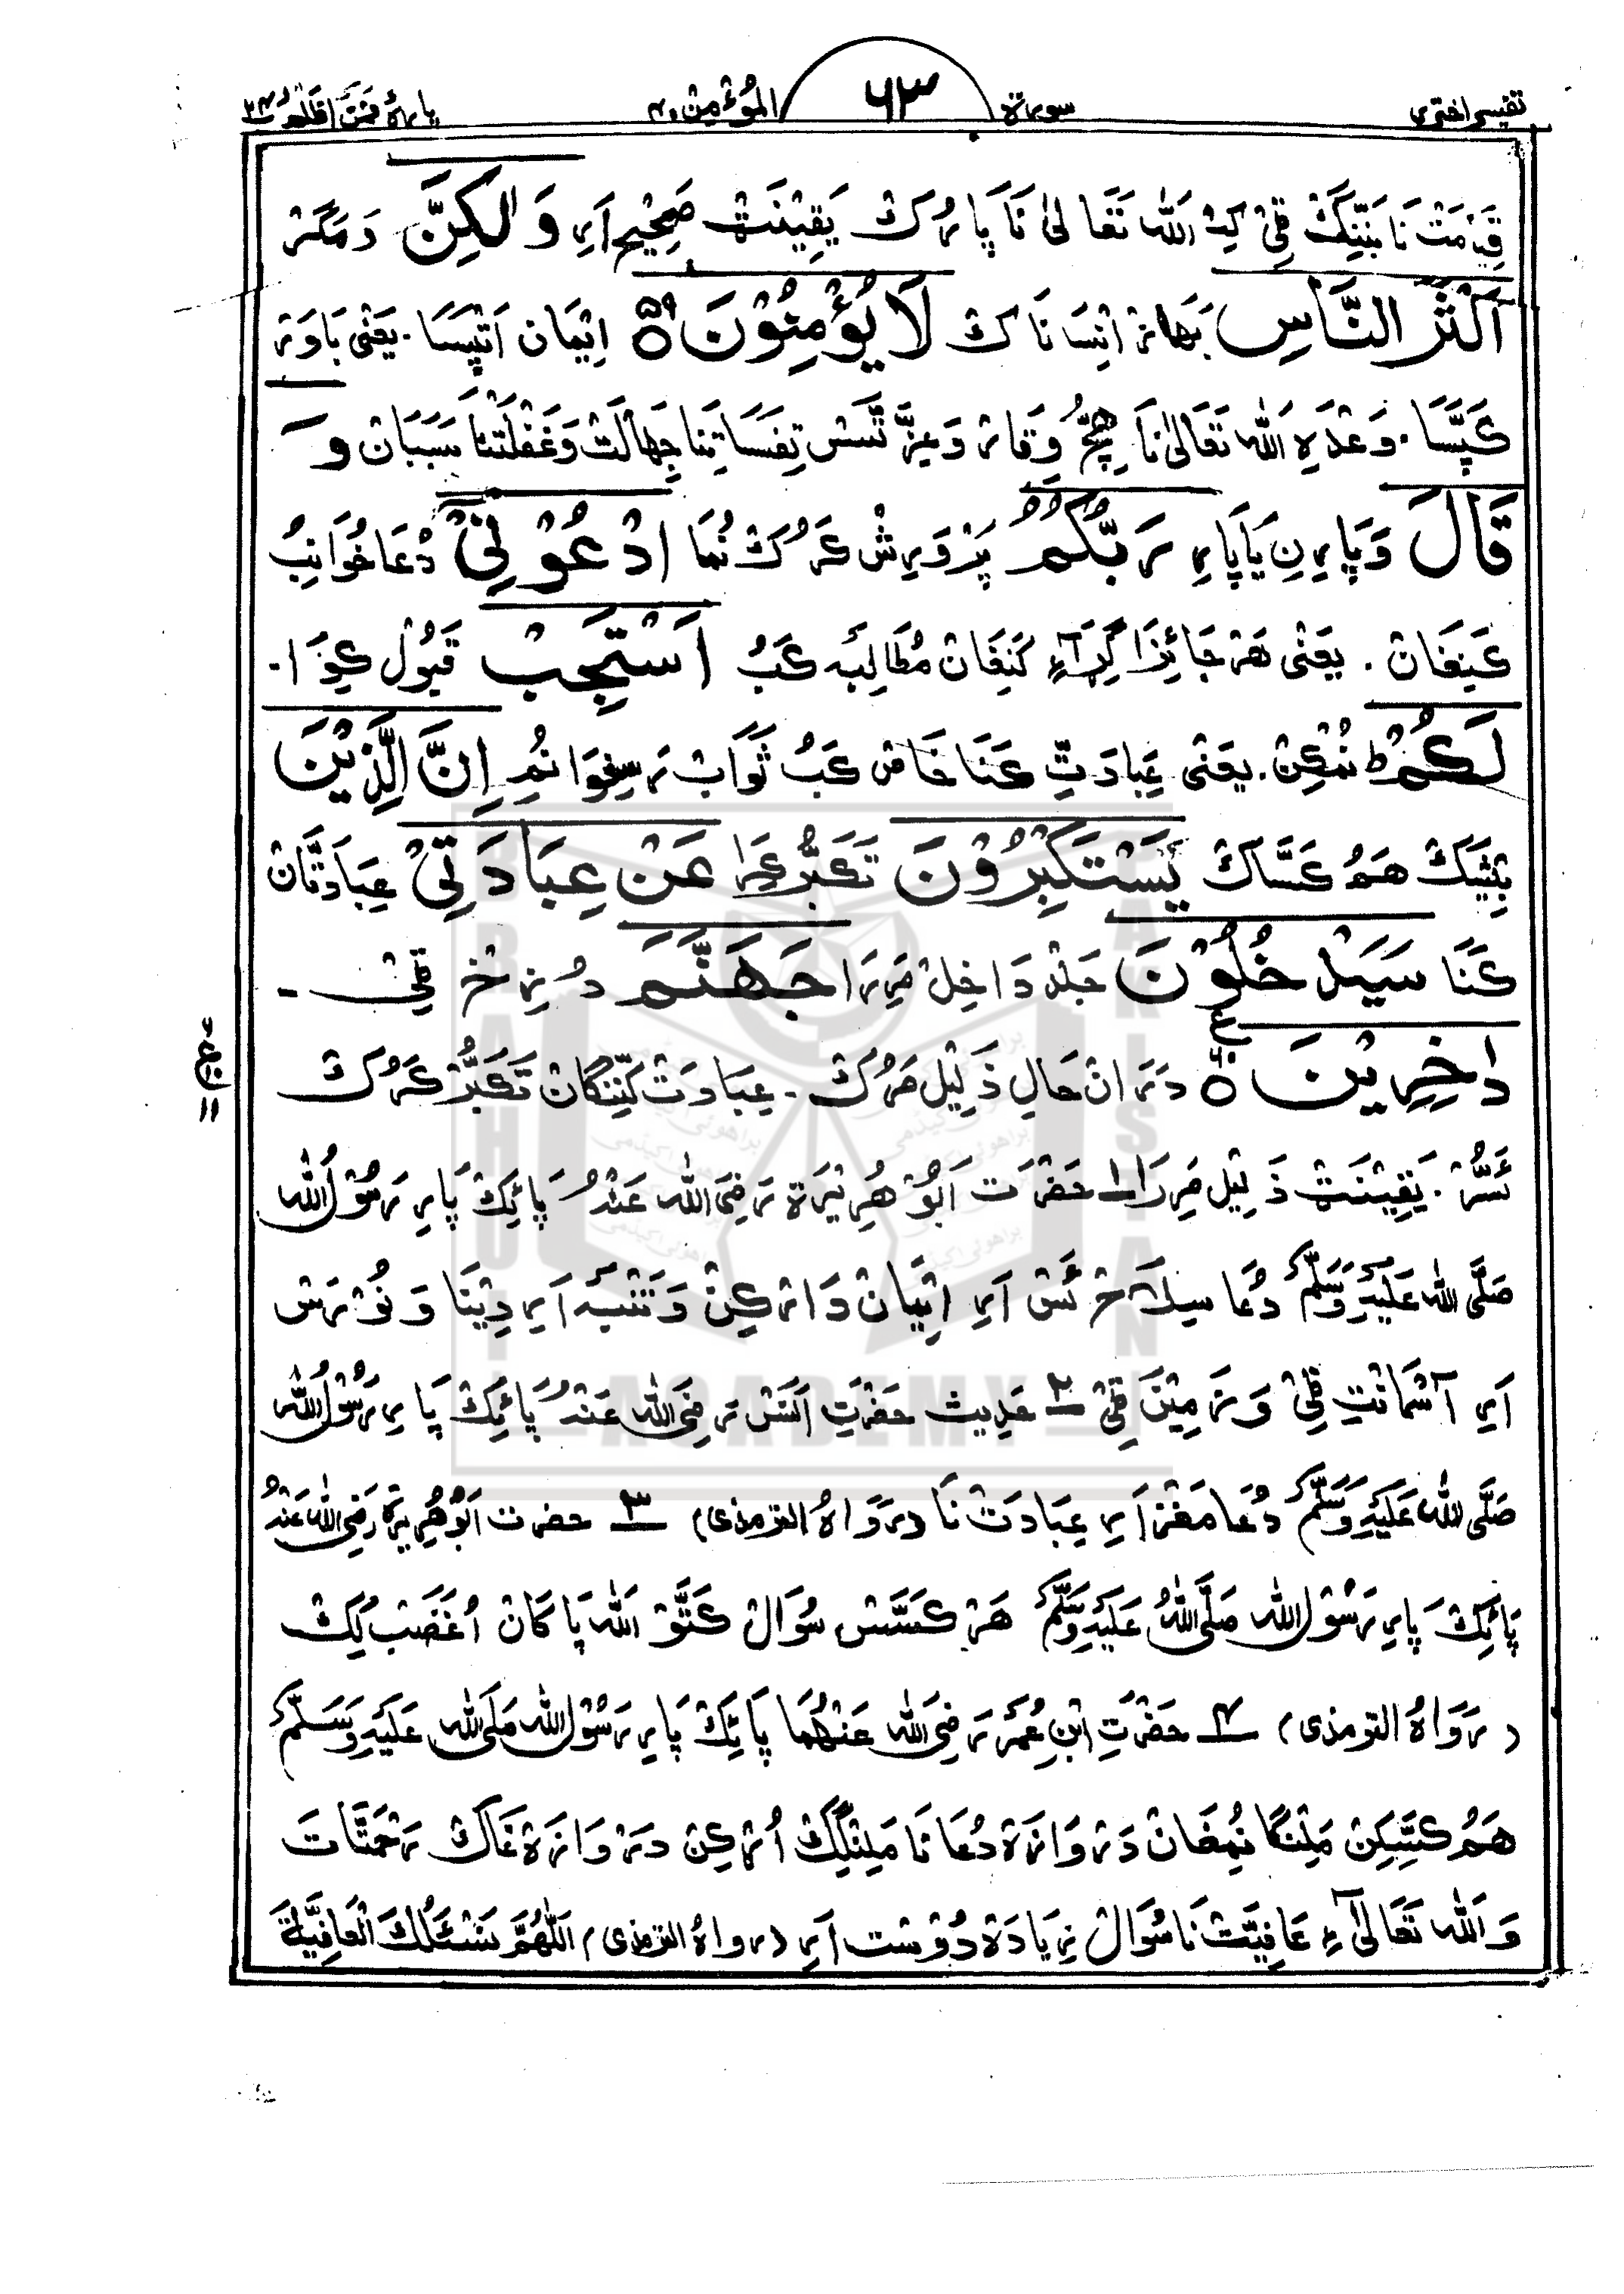 تفسیر اختری سورة ۶۳ المؤمن ۴۰ پارہ فمن اظلم ۲۴
قِیَامَتْ نَا بَنِنِّگ ٹِیْ کِہ اَللّٰہ تَعَالیٰ نَا پَارُک یَقِیْنَتْ صَحِیْح اَرِ وَلٰکِنَّ وَ مَگَرْ
اَکْثَرَ النَّاسِ بَھَازْ اِنْسَانَاک لَا یُؤْمِنُوْنَ ۵۹ اِیْمَان اَتَپَسَا۔ یَعْنٰی بَاوَرْ
کَپَّسَا۔ وَعْدَہِ اَللّٰہ تَعَالیٰ نَا ہِچُّ وَقَار وَ عِزَّتَسْ نَفْسَاتِنَا جِہَالَتْ وَغَفْلَتْنَا سَبَبَان وَ
قَالَ وَ پَارِنِ یَا پَارِ رَبُّکُمُ پَرْوَرِشْ کَرُکْ نُمَا ادْعُوْنِیْٓ دُعَا خُوَانِبُ
کَنِغَان۔ یَعْنٰی ھَرْ جَائِزَا گِرَاءِ کَنِغَان مُطَالِبَہ کَبُ اَسْتَجِبْ قَبُوْل کِوْا۔
لَکُمْ ط نُمْکِنْ۔ یَعْنٰی عِبَادَتِ کَنَا خَاصْ کَبُ ثَوَابْ رَسِفِوَا نُمِ اِنَّ الَّذِیْنَ
بِیْشَکْ ھَمُ کَسَّاکْ یَسْتَکْبِرُوْنَ تَکَبُّرْ کِرَا عَنْ عِبَادَتِیْ عِبَادَتَّان
کَنَا سَیَدْخُلُوْنَ جَلْد دَاخِلْ مَرِرَا جَھَنَّمَ دُزِخْ ٹِیْ۔
دٰخِرِیْنَ ۶۰ دَرَانْ حَالِ ذَلِیْل مَرُکْ۔ عِبَادَتْ کَنِنْگَان تَکَبُّرْ کَرُکْ
ئَسُّرْ۔ یَقِیْنَتْ ذَلِیْل مَرِرَا ۱ حَضْرَت اَبُوْ ھُرَیْرَۃ رَضِیَ اللّٰہ عَنْہُ پَائِکْ پَارِ رَسُوْلُ اللّٰہ
صَلَّی اللّٰہ عَلَیْہِ وَسَلَّمْ دُعَا سِلَاحْ ئَسْ اَرِ اِیْمَان دَارْکِنْ وَ تَنْبَہ اَرِ دِیْنَا وَ نُوْرَسْ
اَرِ آسْمَانْتِ ٹِیْ وَ زَمِیْنَ ٹِیْ ۲ حَدِیث حَضْرَتِ اَنَسْ رَضِیَ اللّٰہ عَنْہُ پَائِکْ پَارِ رَسُوْلُ اللّٰہ
صَلَّی اللّٰہ عَلَیْہِ وَسَلَّمْ دُعَا مَغْز اَرِ عِبَادَتْ نَا (رَوَاہُ الترمذی) ۳ حضرت اَبُوْھُرِیرَۃ رَضِیَ اللّٰہ عَنْہُ
پَائِکْ پَارِ رَسُوْلُ اللّٰہ صَلَّی اللّٰہُ عَلَیْہِ وَسَلَّمْ ھَرْ کَسَّسْ سُوَالْ کَتَّوْ اَللّٰہ پَاکَان اُ غَضَبْ لِّکْ
(رَوَاہُ الترمذی) ۴ حَضْرَتِ ابْنِ عُمَرْ رَضِیَ اللّٰہ عَنْہُمَا پَائِکْ پَارِ رَسُوْلُ اللّٰہ صَلَی اللّٰہ عَلَیْہِ وَسَلَّمْ
ھَمُ کَسِّکِنْ مَلِنْگَا نُمِغَانْ دَرْوَازَہ دُعَا نَا مَلِنْگِکْ اُڑْکِنْ دَرْوَازَہ غَاکْ رَحْمَتَّاتَ
وَاللّٰہ تَعَالٰیٓءِ عَافِیَّتْ نَا سُوَالْ زِیَادَہ دُوْست اَرِ (رواہُ الترمذی) اَللّٰہُمَّ نَسْئَلُکَ الْعَافِیَۃَ